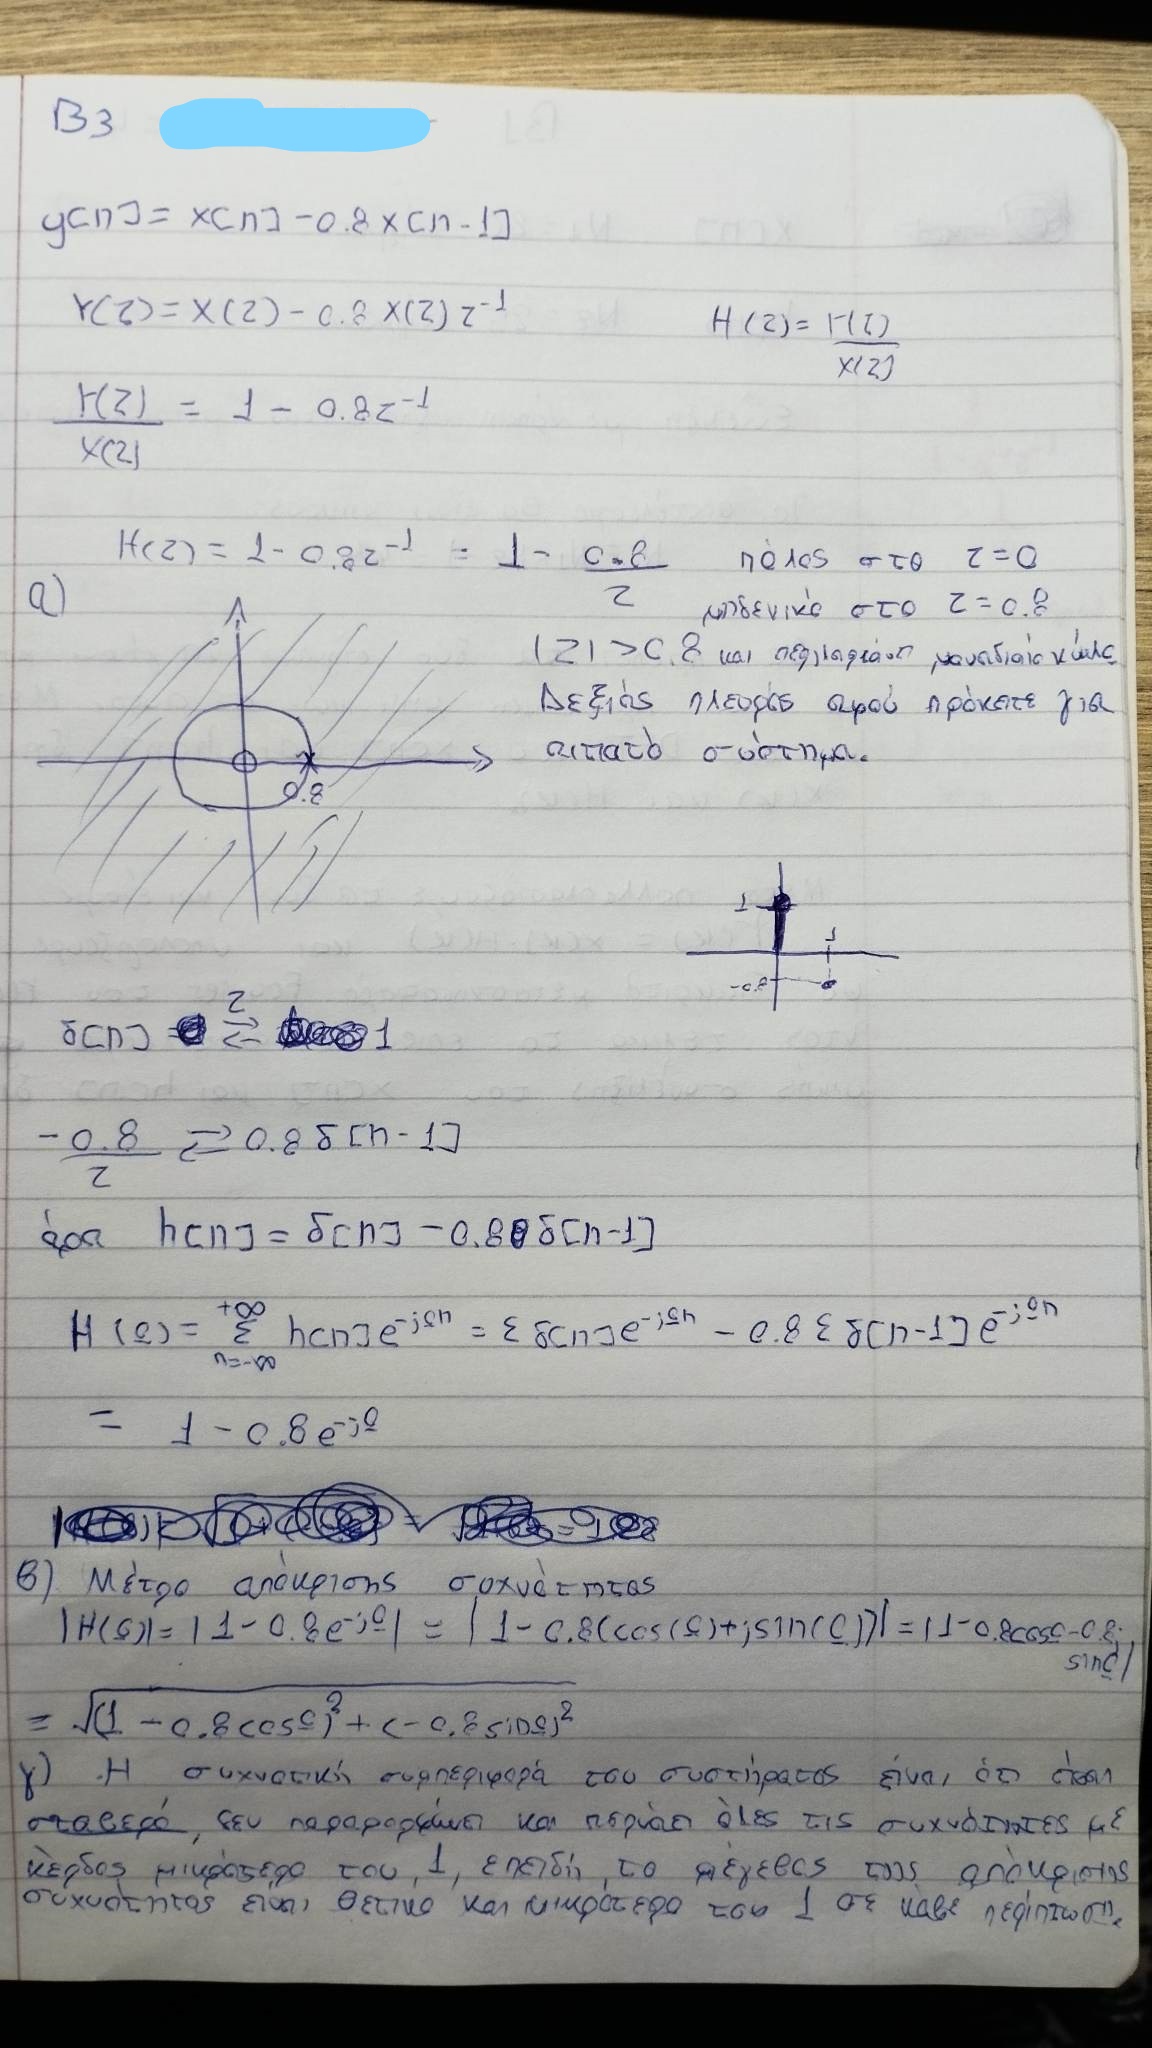 Β3
y[n] = x[n] - 0.8 x[n-1]
Y(z) = X(z) - 0.8 X(z) z^-1
H(z) = Y(z)/X(z)
Y(z)/X(z) = 1 - 0.8z^-1
H(z) = 1 - 0.8z^-1 = 1 - 0.8/z πόλος στο z=0
μηδενικό στο z=0.8
α)
|z| > 0.8 και περιλαμβάνει μοναδιαίο κύκλο
Δεξιάς πλευράς αφού πρόκειτε για
αιτιατό σύστημα.
0.8
1
1
-0.8
δ[n] ⇄ 1
z
-0.8/z ⇄ 0.8 δ[n-1]
άρα h[n] = δ[n] - 0.8 δ[n-1]
H(Ω) = Σ n=-∞ +∞ h[n]e^-jΩn = Σ δ[n]e^-jΩn - 0.8 Σ δ[n-1] e^-jΩn
= 1 - 0.8e^-jΩ
β) Μέτρο απόκρισης συχνότητας
|H(Ω)| = |1 - 0.8e^-jΩ| = |1 - 0.8(cos(Ω)+jsin(Ω))| = |1 - 0.8cosΩ - 0.8j
sinΩ|
= √(1 - 0.8cosΩ)^2 + (-0.8sinΩ)^2
γ) Η συχνοτική συμπεριφορά του συστήματος είναι ότι είναι
σταθερό, δεν παραμορφώνει και περνάει όλες τις συχνότητες με
κέρδος μικρότερο του 1, επειδή το μέγεθος της απόκρισης
συχνότητας είναι θετικό και μικρότερο του 1 σε κάθε περίπτωση.